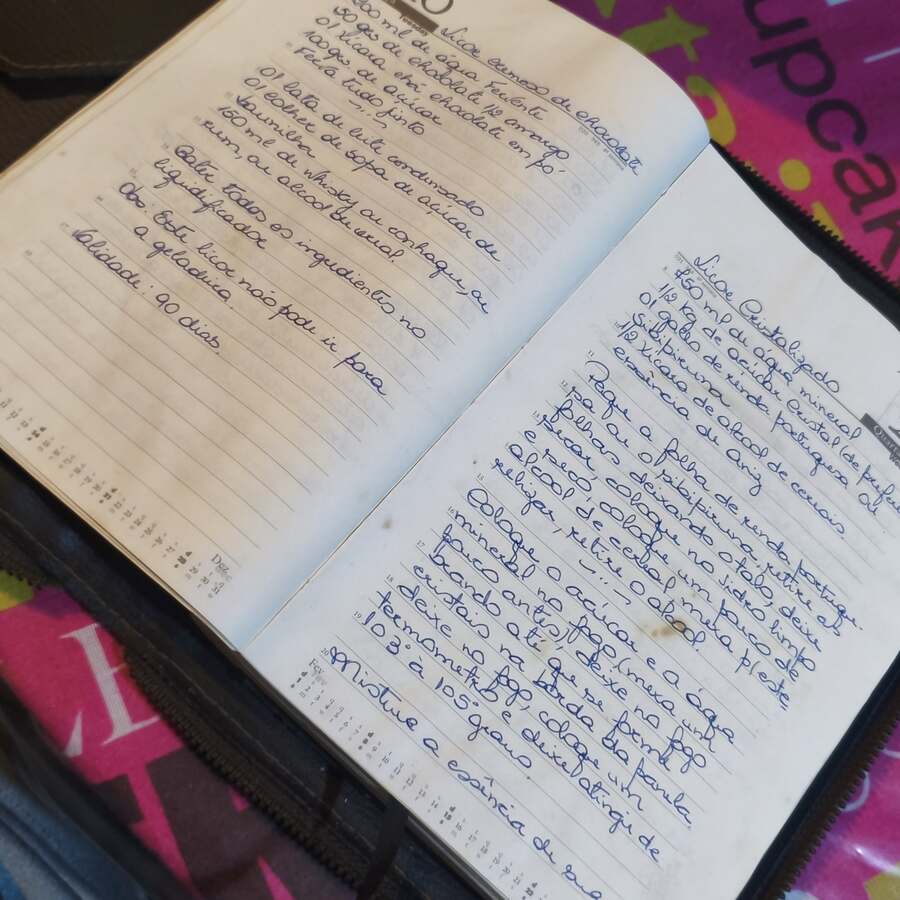 Licor cremoso de chocolate
200 ml de água fervente
50 grs de chocolate 1/2 amargo
01 xícara chá chocolate em pó
100 grs de açúcar
Ferva tudo junto
01 lata de leite condensado
01 colher de sopa de açúcar de
vaumilha
150 ml de whisky ou conhaque, ou
rum, ou alcool de cereal
Bater todos os ingredientes no
liquidificador
Obs: Este licor não pode ir para
a geladeira.
Validade: 90 dias.
Licor Cristalizado
750 ml de água mineral
1/2 kg de açúcar cristal (de prefer
01 galho de renda portuguesa ou
Sibipiruna
1/2 xícara de alcool de cereais
essência de aniz
Pegue a folha de renda portugue.
sa ou o sibipiruna, retire as
folhas deixando o talo, deixe
secar, coloque no vidro limpo
e seco, coloque um pouco de
alcool de cereal, mexa p/ este
retirar, retire o alcool.
Coloque o açúcar e a água
mineral no fogo (mexa um
pouco antes), deixe no fogo
brando até que se forme
cristais na borda da panela,
deixe no fogo, coloque um
termometro e deixe atingir de
103° à 105° graus.
Misture a essência de sua
cupcak